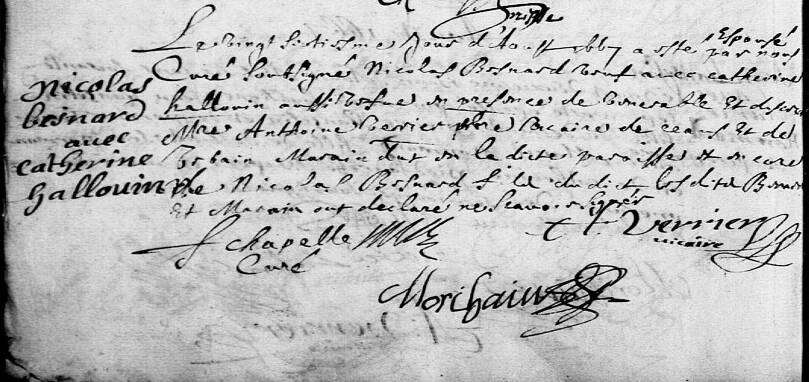 Le vingt sixtiesme jour d'Aoust 1667 a esté Espousé par nous
Curé soubsigné Nicolas Besnard veuf avec catherine
hallouin aussi vefve en presence de venerable Et discret
Mre Anthoine Verrier pbre vicaire de ceans Et de
Urbain Marain de la dite paroisse et encore
de Nicolas Besnard fils du dict, lesdits Besnard
Et Marain ont declaré ne scavoir signer
nicolas
besnard
avec
catherine
hallouin
f chapelle
Curé
Verrier
vicaire
Morihain